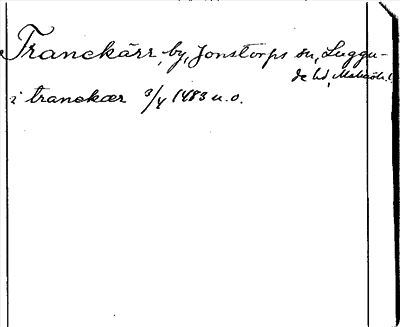 Tranckärr, by, Jonstorps sn, Luggu-
de hd, Malmöh. l
i tranekær 3/4 1483 u.o.